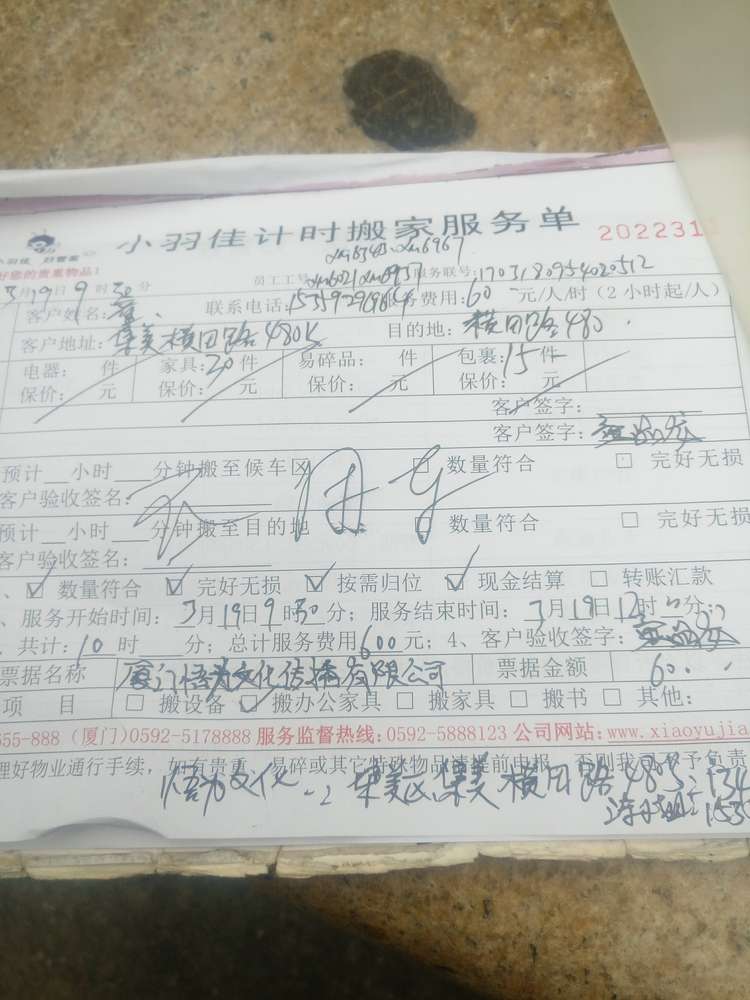 小羽佳计时搬家服务单
2022311
小羽佳 好管家
好您的贵重物品!
员工工号 服务联号:1703180954020512
3月19日9时30分
客户姓名: 联系电话: 费用:60元/人/时(2小时起/人)
客户地址:集美横田路480 目的地:横田路480
电器: 件 家具:30件 易碎品: 件 包裹:15件
保价: 元 保价: 元 保价: 元 保价: 元
客户签字:
客户签字:
预计__小时___分钟搬至候车区 □ 数量符合 □ 完好无损
客户验收签名:
预计__小时___分钟搬至目的地 □ 数量符合 □ 完好无损
客户验收签名:
、☑ 数量符合 ☑ 完好无损 ☑ 按需归位 ☑ 现金结算 □ 转账汇款
、服务开始时间:3月19日9时30分;服务结束时间:3月19日12时 分;
、共计:10时 分;总计服务费用600元;4、客户验收签字:
票据名称 厦门悟为文化传播有限公司 票据金额 600
项 目 □ 搬设备 ☑ 搬办公家具 □ 搬家具 □ 搬书 □ 其他:
555-888 (厦门)0592-5178888 服务监督热线:0592-5888123 公司网站:www.xiaoyujia
理好物业通行手续,如有贵重、易碎或其它特殊物品请提前申报,否则我司不予负责
悟为文化 集美区集美横田路480